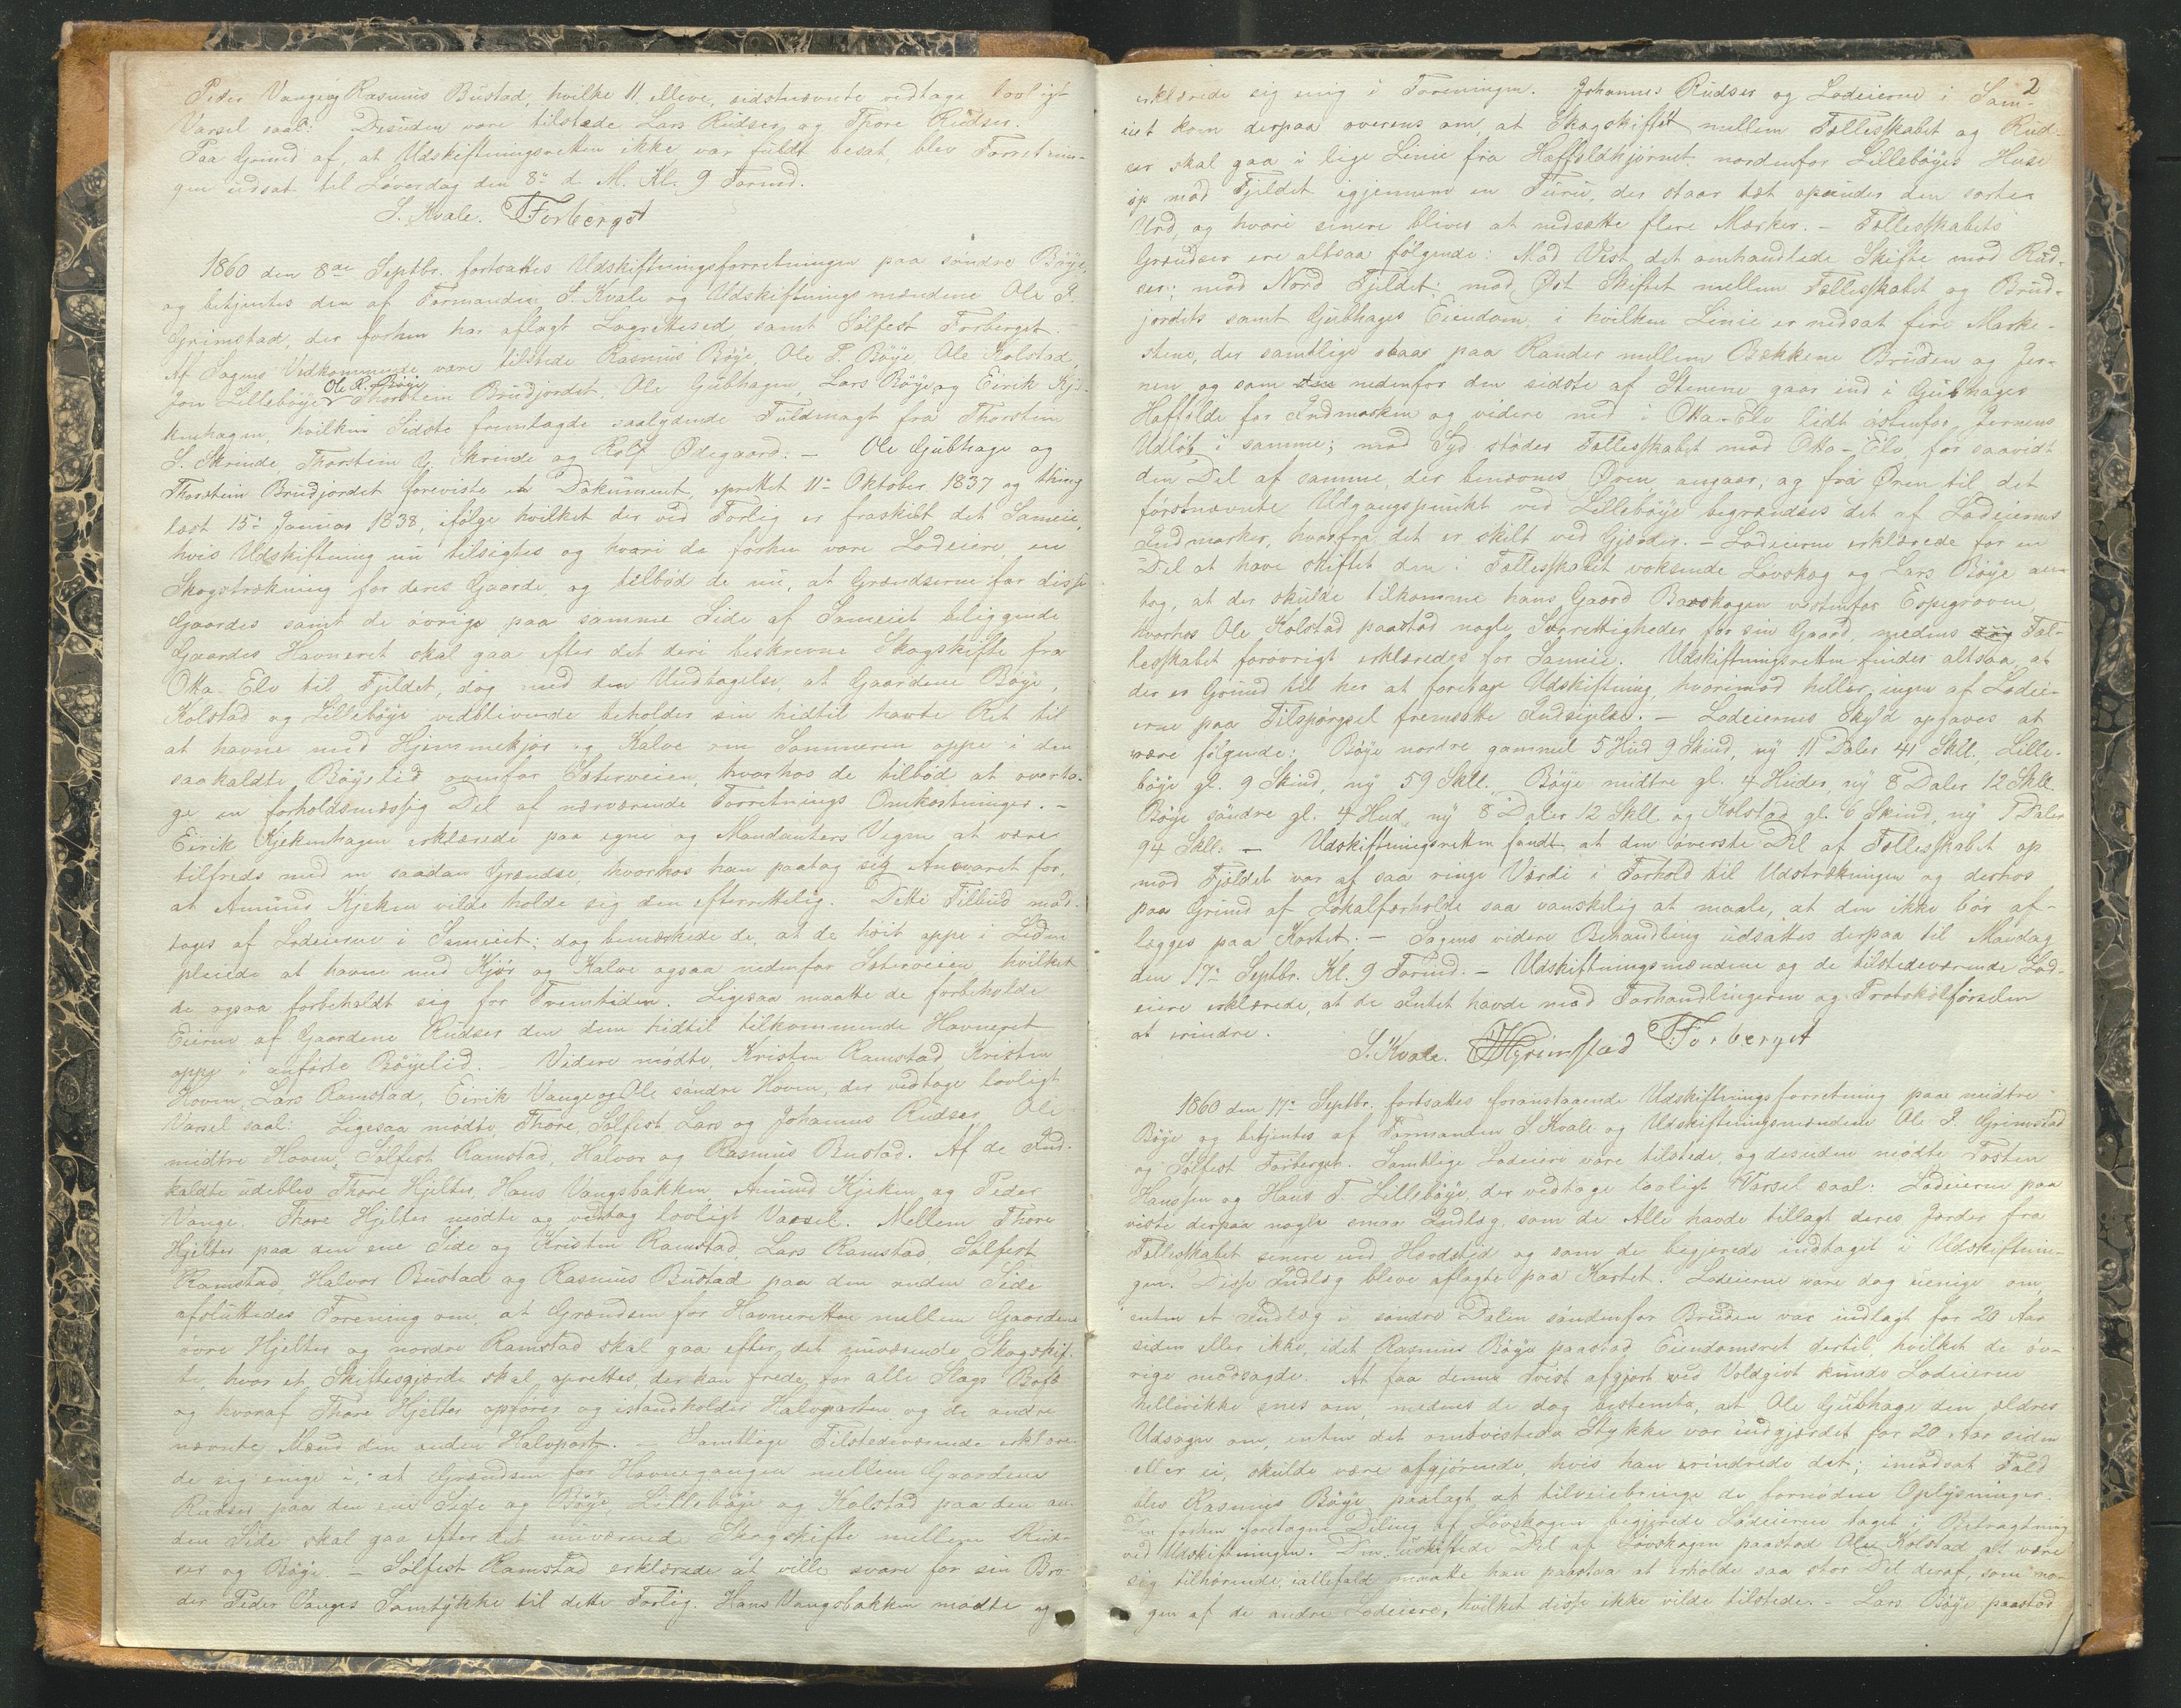 Peder Vange og Rasmus Bustad, hvilke 11 elleve, sidstnævnte vedtage lovligt
Varsel saal: Desuden vare tilstede Lars Rudser og Thore Rudser.
Paa Grund af, at Udskiftningsretten ikke var fuldt besat, blev Forretnin-
gen udsat til Løverdag den 8de d. M. Kl. 9 Formd.
S. Kvale. Forberget
1860 den 8de Septbr. fortsattes Udskiftningsforretningen paa søndre Bøye,
og betjentes den af Formanden S. Kvale og Udskiftningsmændene Ole P.
Grimstad, der forhen har aflagt Lagrettesed samt Sølfest Forberget.
Af Sagens Vedkommende vare tilstede Rasmus Bøye, Ole P. Bøye, Ole Kolstad,
Jon Lillebøye, Ole R. Bøye, Thorstein Brudjordet, Ole Gubhagen, Lars Bøye og Eirik Kje-
kenhagen, hvilken Sidste fremlagde saalydende Fuldmagt fra Thorstein
S. Skrinde, Thorstein G. Skrinde og Rolf Ødegaard. – Ole Gubhage og
Thorstein Brudjordet foreviste et Dokument, oprettet 11te Oktober 1837 og thing
læst 15de Januar 1838, ifølge hvilket der ved Forlig er fraskilt det Sameie,
hvis Udskiftning nu tilsigtes og hvori de forhen vare Lodeiere, en
Skogstrækning for deres Gaarde, og tilbød de nu, at Grændserne for disse
Gaardes samt de øvrige paa samme Side af Sameiet beliggende
Gaardes Havneret skal gaa efter det deri beskrevne Skogskifte fra
Otta-Elv til Fjeldet, dog med den Undtagelse, at Gaardene Bøye,
Kolstad og Lillebøye vedblivende beholder sin hidtil havte Ret til
at havne med Hjemmekjør og Kalve om Sommeren oppe i den
saakaldte Bøyelid ovenfor Sæterveien, hvorhos de tilbød at overta-
ge en forholdsmæssig Del af nærværende Forretnings Omkostninger. –
Eirik Kjekenhagen erklærede paa egne og Mandanters Vegne at være
tilfreds med en saadan Grændse, hvorhos han paatog sig Ansvaret for,
at Amund Kjeken vilde holde sig den efterrettelig. Dette Tilbud mod-
toges af Lodeierne i Sameiet; dog bemærkede de, at de høit oppe i Liden
pleiede at havne med Kjør og Kalve ogsaa nedenfor Sæterveien, hvilket
de ogsaa forbeholdt sig for Fremtiden. Ligesaa maatte de forbeholde
Eierne af Gaardene Rudser den dem hidtil tilkommende Havneret
oppe i anførte Bøyelid. – Videre mødte, Kristen Ramstad, Kristen
Hoven, Lars Ramstad, Eirik Vange og Ole søndre Hoven, der vedtoge lovligt
Varsel saal: Ligesaa mødte, Thore, Sølfest, Lars og Johannes Rudser, Ole
midtre Hoven, Sølfest Ramstad, Halvor og Rasmus Bustad. Af de Ind-
kaldte udeblev Thore Hjelter, Hans Vangsbakken, Amund Kjeken og Peder
Vange. Thore Hjelter mødte og vedtog lovligt Varsel. Mellem Thore
Hjelter paa den ene Side og Kristen Ramstad, Lars Ramstad, Sølfest
Ramstad, Halvor Bustad og Rasmus Bustad paa den anden Side
afsluttedes Forening om, at Grændsen for Havneretten mellem Gaardene
øvre Hjelter og nordre Ramstad skal gaa efter det nuværende Skogskif-
te, hvor et Skiftesgjærde skal oprettes, der kan frede for alle Slags Bøfæ
og hvoraf Thore Hjelter opfører og istandholder Halvparten og de andre
nævnte Mænd den anden Halvpart. – Samtlige Tilstedeværende erklære-
de sig enige i, at Grændsen for Havnegangen mellem Gaardene
Rudser paa den ene Side og Bøye, Lillebøye og Kolstad paa den an-
den Side skal gaa efter det nuværende Skogskifte mellem Rud-
ser og Bøye. – Sølfest Ramstad erklærede at ville svare for sin Bro-
der Peder Vanges Samtykke til dette Forlig. Hans Vangsbakken mødte og
2
erklærede sig enig i Foreningen. Johannes Rudser og Lodeierne i Sam-
eiet kom derpaa overens om, at Skogskiftet mellem Fællesskabet og Rud-
ser skal gaa i lige Linie fra Hafteldhjørnet nordenfor Lillebøyes Huse
op mod Fjeldet igjennem en Furu, der staar tæt opunder den sorte
Urd, og hvori senere bliver at nedsætte flere Mærker. – Fællesskabets
Grændser ere altsaa følgende: Mod Vest det omhandlede Skifte mod Rud-
ser; mod Nord Fjeldet; mod Øst Skiftet mellem Fællesskabet og Brud-
jordets samt Gubhages Eiendom, i hvilken Linie er nedsat fire Marke-
stene, der samtlige staar paa Rander mellem Bækkene Bruden og Jer-
nen og som nedenfor den sidste af Stenene gaar ind i Gubhages
Haftelde for Indmarken og videre ned i Otta-Elv lidt østenfor Jernens
Udløb i samme; mod Syd støder Fællesskabet mod Otta-Elv, for saavidt
den Del af samme, der benævnes Øren, angaar; og fra Øren til det
førstnævnte Udgangspunkt ved Lillebøye begrændses det af Lodeiernes
Indmarker, hvorfra det er skilt ved Gjærder. – Lodeierne erklærede for en
Del at have skiftet den i Fællesskabet voksende Løvskog og Lars Bøye an-
tog, at der skulde tilkomme hans Gaard Barskogen vestenfor Espegroven,
hvorhos Ole Kolstad paastod nogle Særrettigheder for sin Gaard, medens Fæl-
lesskabet forøvrigt erklæredes for Sameie. Udskiftningsretten finder altsaa, at
der er Grund til her at foretage Udskiftning, hvorimod heller ingen af Lodei-
erne paa Tilspørgsel fremsatte Indsigelse. – Lodeiernes Skyld opgaves at
være følgende: Bøye nordre gammel 5 Hud 9 Skind, ny 11 Daler 41 Skll., Lille-
bøye gl. 9 Skind, ny 59 Skll., Bøye midtre gl. 4 Huder, ny 8 Daler 12 Skll.
Bøye søndre gl. 4 Hud, ny 8 Daler 12 Skll. og Kolstad gl. 6 Skind, ny 1 Daler
94 Skll. – Udskiftningsretten fandt, at den øverste Del af Fællesskabet op
mod Fjeldet var af saa ringe Værdi i Forhold til Udstrækningen og derhos
paa Grund af Lokalforholde saa vanskelig at maale, at den ikke bør af-
lægges paa Kartet. – Sagens videre Behandling udsattes derpaa til Mandag
den 17de Septbr. Kl. 9 Formd. – Udskiftningsmændene og de tilstedeværende Lod-
eiere erklærede, at de Intet havde mod Forhandlingerne og Protokolførselen
at erindre.
S. Kvale. Grimstad Forberget
1860 den 17de Septbr. fortsattes foranstaaende Udskiftningsforretning paa midtre
Bøye og betjentes af Formanden S. Kvale og Udskiftningsmændene Ole P. Grimstad
og Sølfest Forberget. Samtlige Lodeiere vare tilstede, og desuden mødte Tosten
Hanssen og Hans T. Lillebøye, der vedtoge lovligt Varsel saal: Lodeierne paa
viste derpaa nogle smaa Indlæg, som de Alle havde tillagt deres Jorder fra
Fællesskabet senere end Hævdstid og som de begjerede indtaget i Udskiftnin-
gen. Disse Indlæg bleve aflagte paa Kartet. Lodeierne vare dog uenige om,
enten et Indlæg i søndre Dalen søndenfor Bruden var indlagt for 20 Aar
siden eller ikke, idet Rasmus Bøye paastod Eiendomsret dertil, hvilket de øv-
rige modsagde. At faa denne Tvist afgjort ved Voldgivt kunde Lodeierne
hellerikke enes om, medens de dog bestemte, at Ole Gubhage den ældres
Udsagn om, enten det omtvistede Stykke var indgjærdet for 20 Aar siden
eller ei, skulde være afgjørende, hvis han erindrede det; imodsat Fald
blev Rasmus Bøye paalagt at tilveiebringe de fornødne Oplysninger.
Den forhen foretagne Deling af Løvskogen begjerede Lodeierne taget i Betragtning
ved Udskiftningen. Den uskiftede Del af Løvskogen paastod Ole Kolstad at være
sig tilhørende, iallefald maatte han paastaa at erholde saa stor Del deraf, som no-
gen af de andre Lodeiere, hvilket disse ikke vilde tilstede. – Lars Bøye paastod